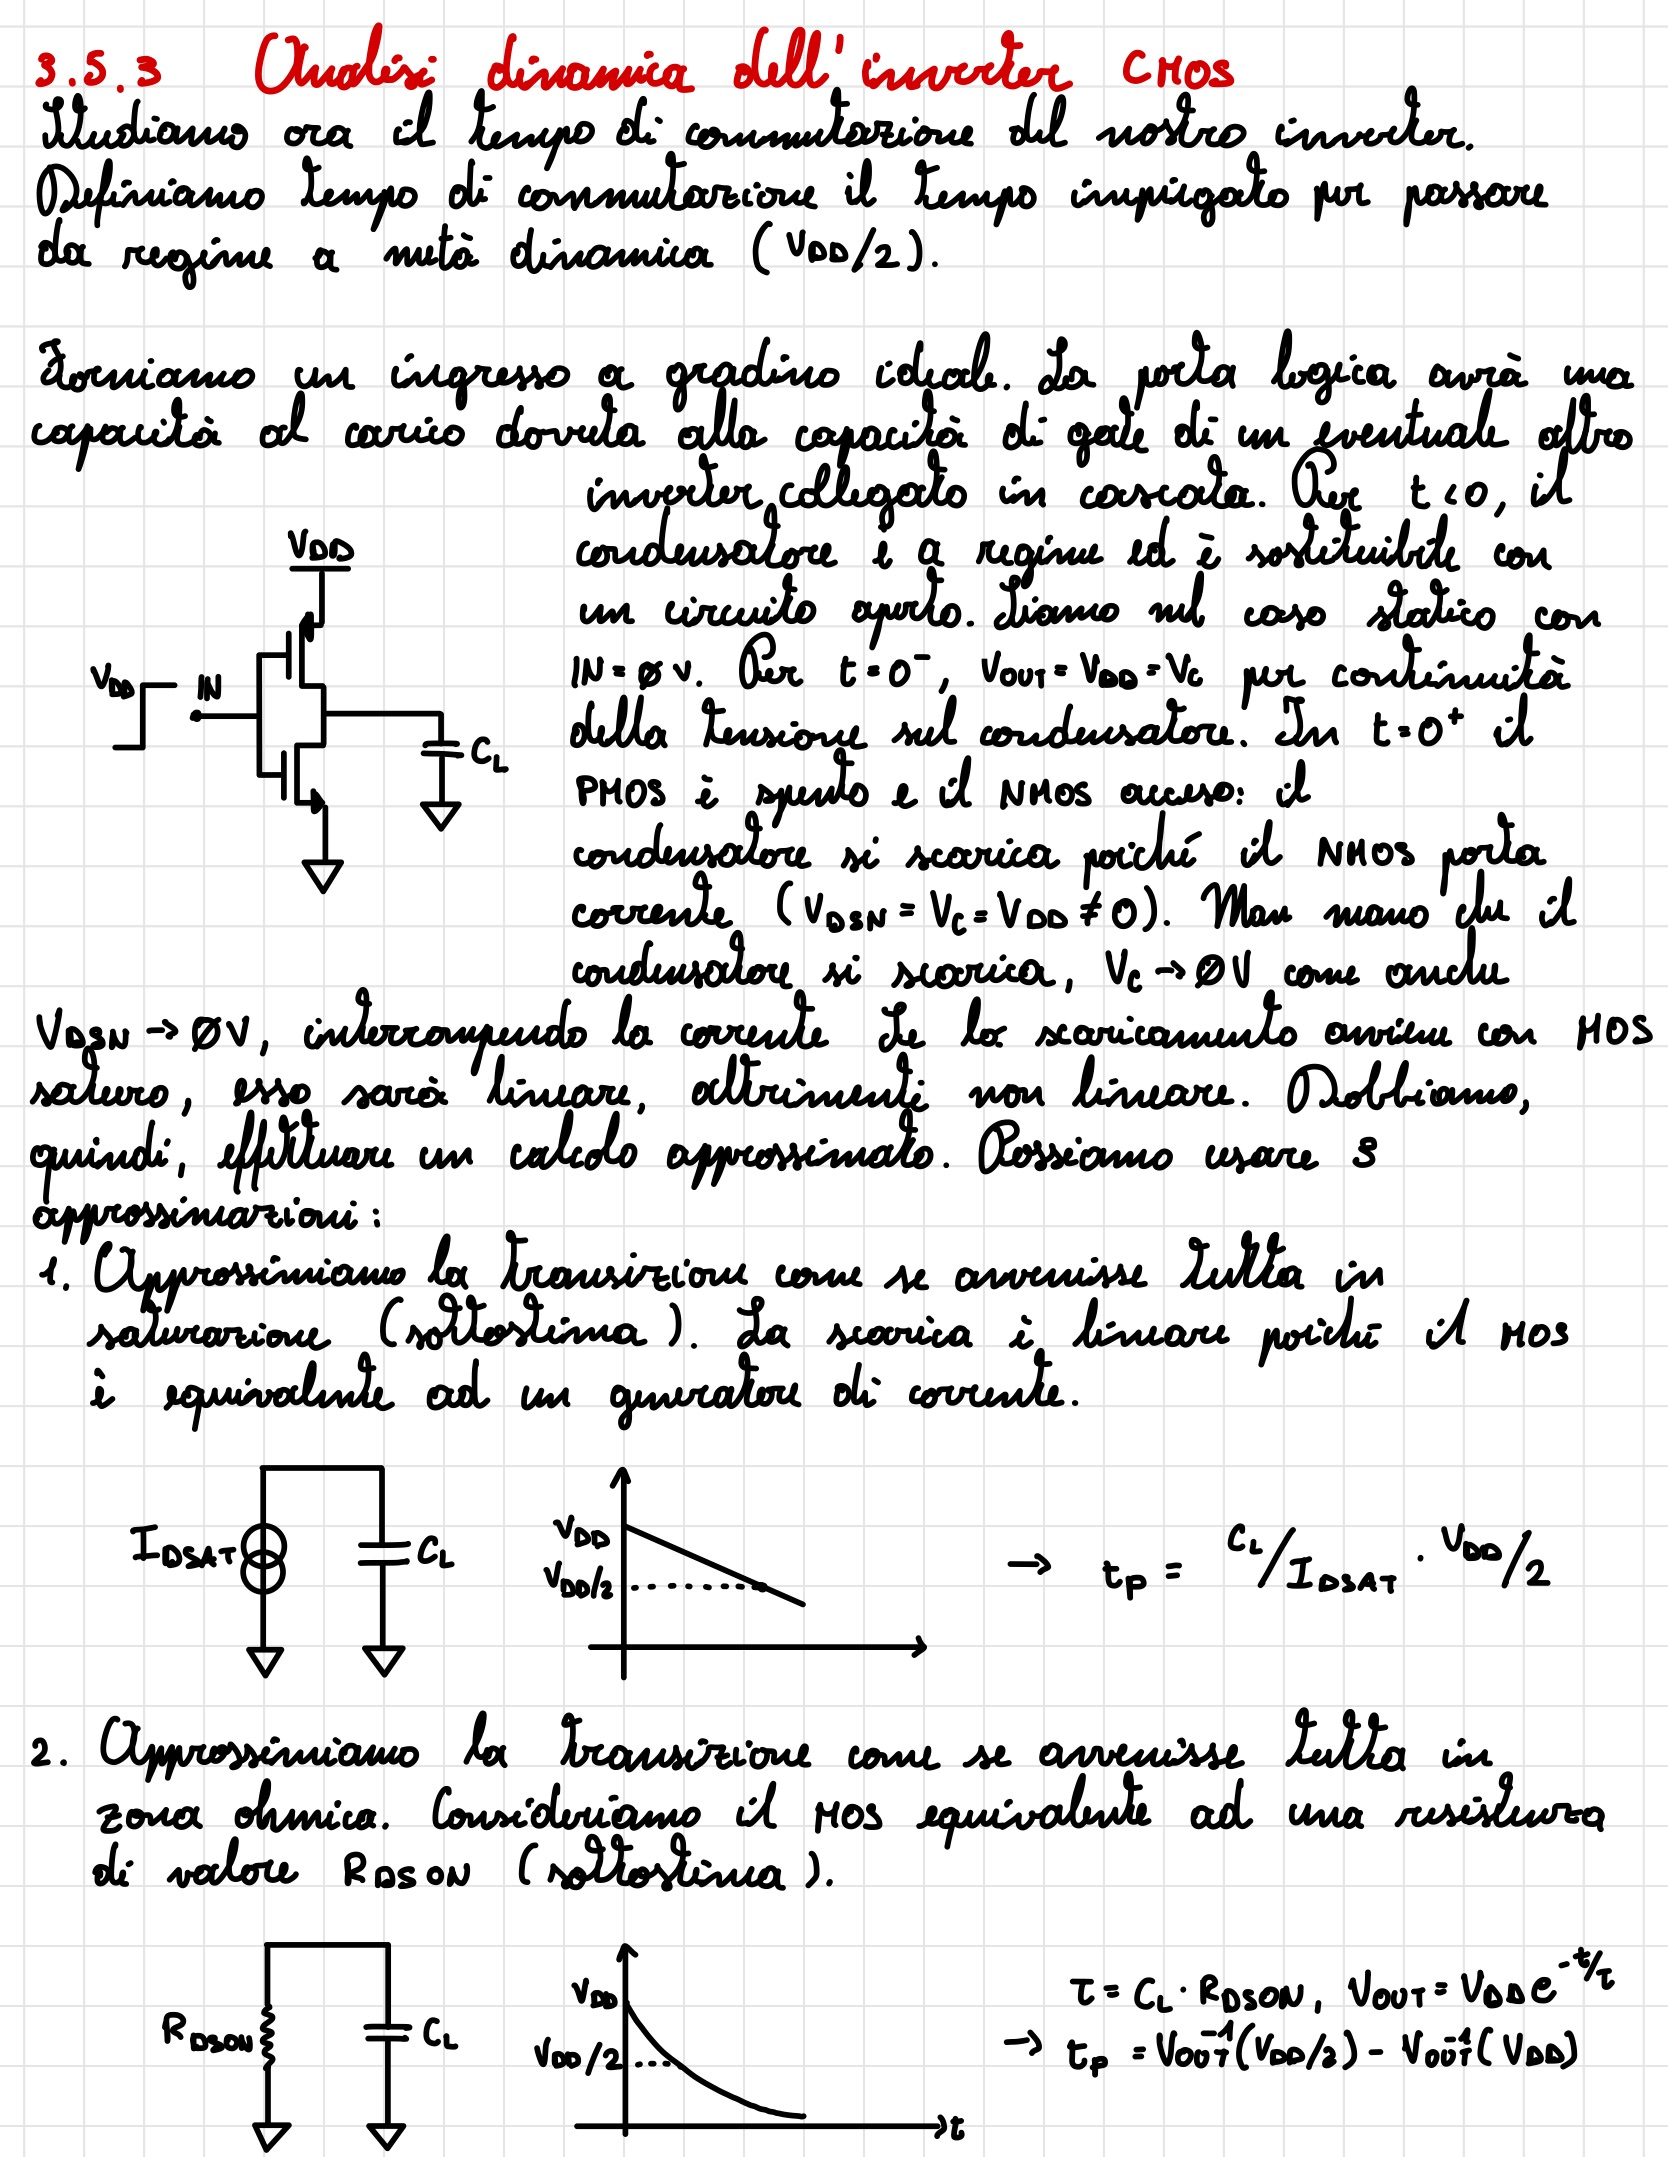 3.5.3 Analisi dinamica dell'inverter CMOS
Studiamo ora il tempo di commutazione del nostro inverter.
Definiamo tempo di commutazione il tempo impiegato per passare
da regime a metà dinamica (VDD/2).
Forniamo un ingresso a gradino ideale. La porta logica avrà una
capacità al carico dovuta alla capacità di gate di un eventuale altro
inverter collegato in cascata. Per t<0, il
condensatore è a regime ed è sostituibile con
un circuito aperto. Siamo nel caso statico con
IN=øv. Per t=0⁻, VOUT=VDD=VC per continuità
della tensione sul condensatore. In t=0⁺ il
PMOS è spento e il NMOS acceso: il
condensatore si scarica poiché il NMOS porta
corrente (VDSN=VC=VDD≠0). Man mano che il
condensatore si scarica, VC→ØV come anche
VDD
VDD
IN
CL
VDSN→ØV, interrompendo la corrente Se lo scaricamento avviene con MOS
saturo, esso sarà lineare, altrimenti non lineare. Dobbiamo,
quindi, effettuare un calcolo approssimato. Possiamo usare 3
approssimazioni:
1. Approssimiamo la transizione come se avvenisse tutta in
saturazione (sottostima). La scarica è lineare poiché il MOS
è equivalente ad un generatore di corrente.
IDSAT
CL
VDD
VDD/2
→ tp = CL/IDSAT · VDD/2
2. Approssimiamo la transizione come se avvenisse tutta in
zona ohmica. Consideriamo il MOS equivalente ad una resistenza
di valore RDSON (sottostima).
RDSON
CL
VDD
VDD/2
t
τ=CL·RDSON, VOUT=VDDe^-t/τ
→ tp = VOUT⁻¹(VDD/2) - VOUT⁻¹(VDD)